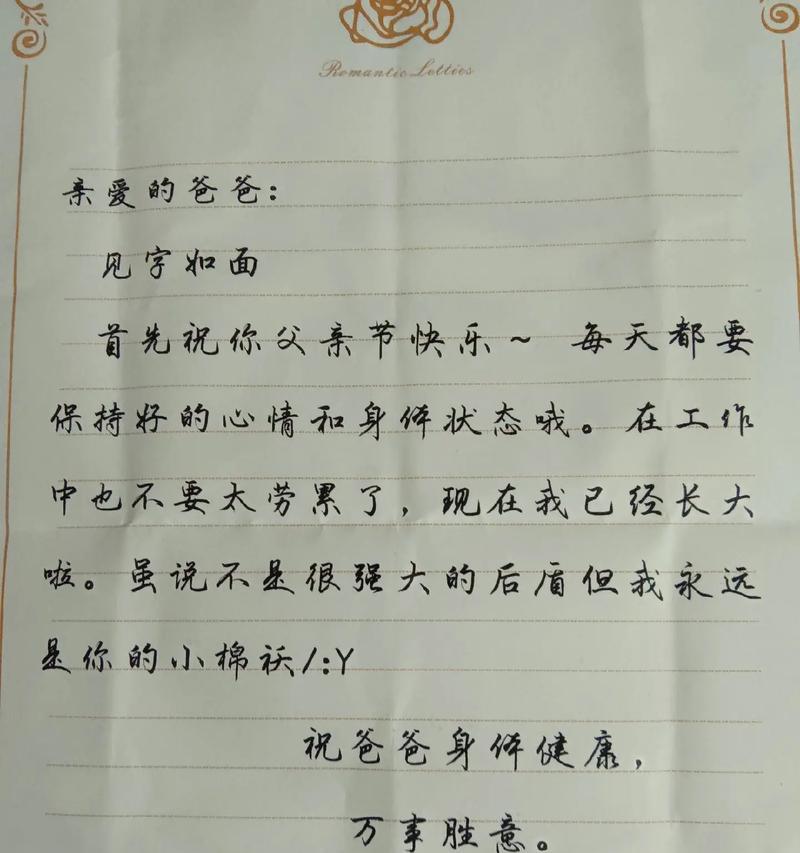 Romantic Letties
亲爱的爸爸:
见字如面
首先祝你父亲节快乐~ 每天都要
保持好的心情和身体状态哦。在工作
中也不要太劳累了,现在我已经长大
啦。虽说不是很强大的后盾但我永远
是你的小棉袄/:Y
祝爸爸身体健康,
万事胜意。